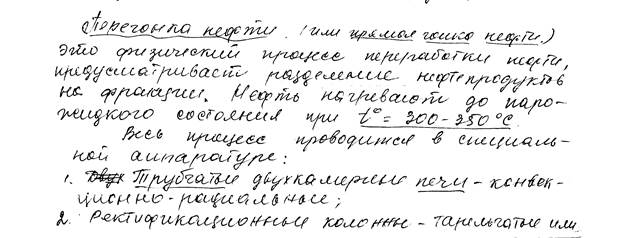 Перегонка нефти. (или прямая гонка нефти.)
это физический процесс переработки нефти,
предусматривает разделение нефтепродуктов
на фракции. Нефть нагревают до паро-
жидкого состояния при t° = 300-350°С.
Весь процесс проводится в специаль-
ной аппаратуре:
1. Трубчатые двухкамерные печи - конвек-
ционно-рациальные;
2. Ректификационные колонны - тарельчатые или